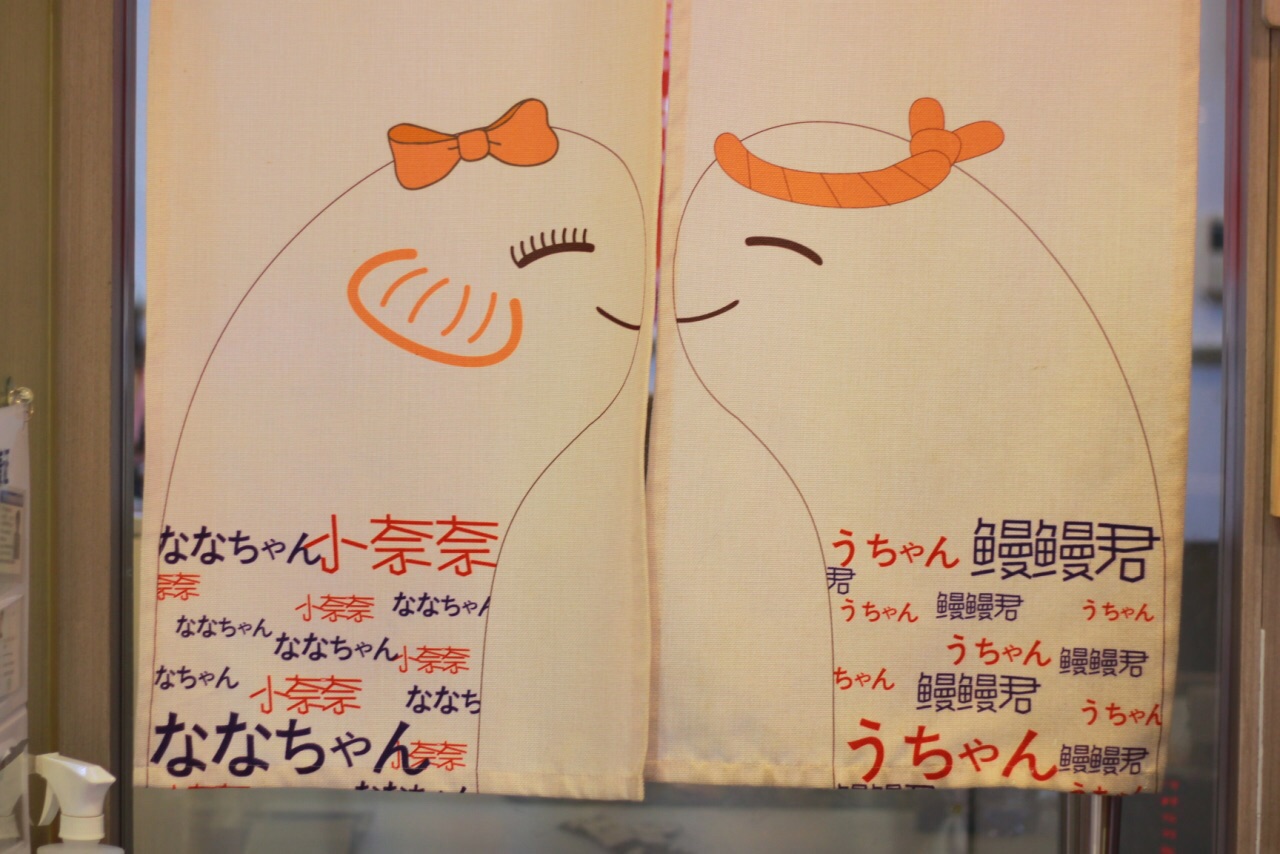 ななちゃん小奈奈
奈奈
小奈奈 ななちゃん
ななちゃん
ななちゃん小奈奈
なちゃん 小奈奈 ななち
ななちゃん小奈奈
うちゃん 鳗鳗君
君
うちゃん 鳗鳗君 うちゃん
うちゃん 鳗鳗君
ちゃん 鳗鳗君 うちゃん
うちゃん鳗鳗君